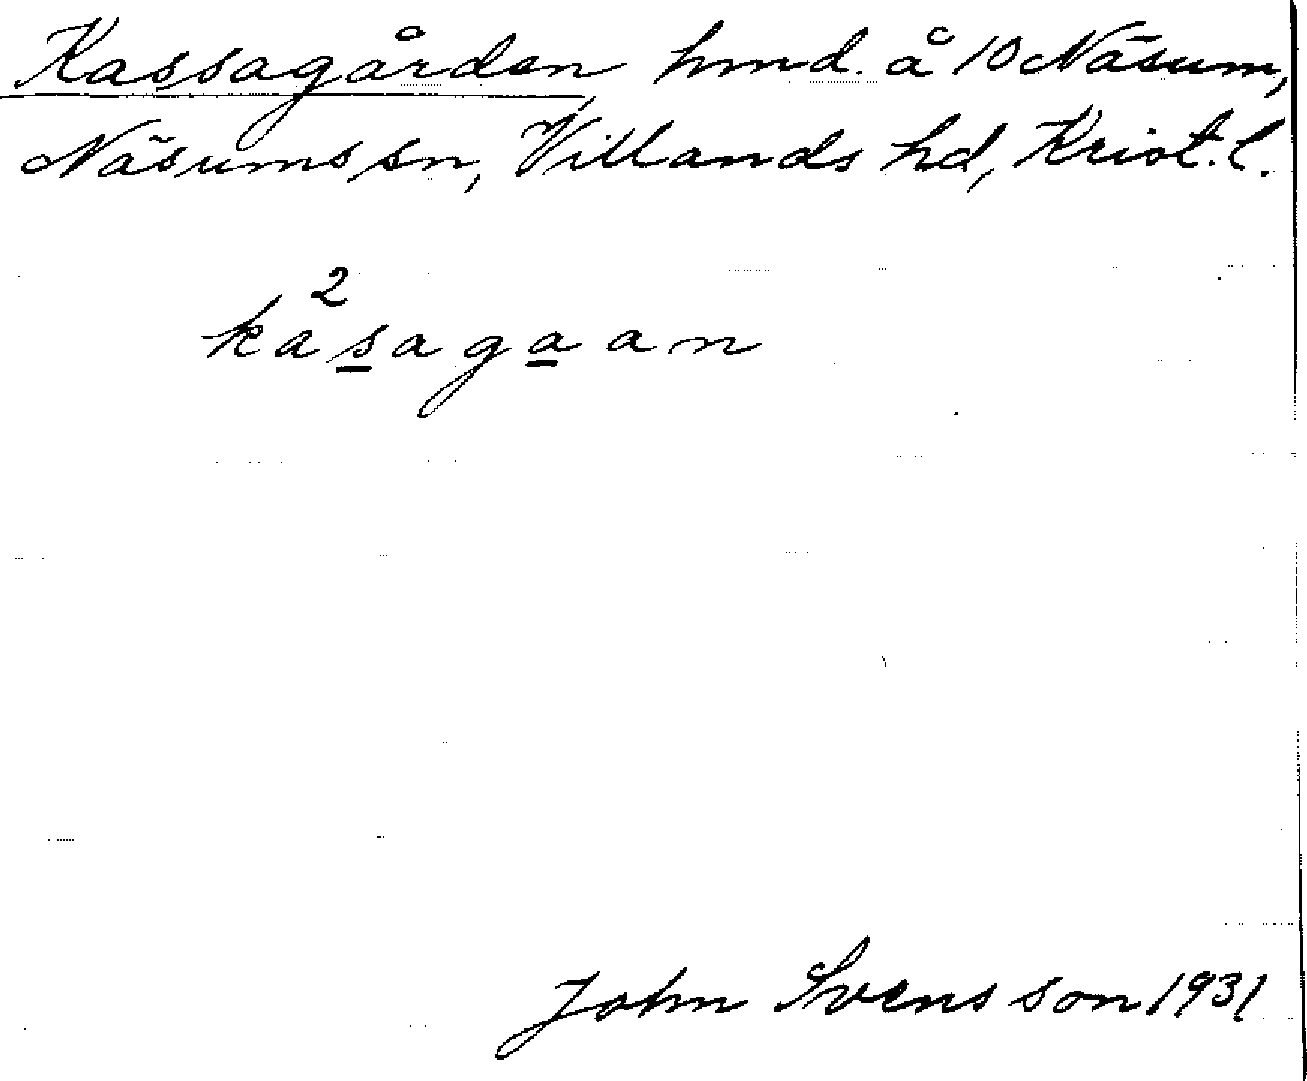 Kassagården hmd. å 10 Näsum,
Näsums sn, Villands hd, Krist. l.
2
kasagaan
John Svensson 1931